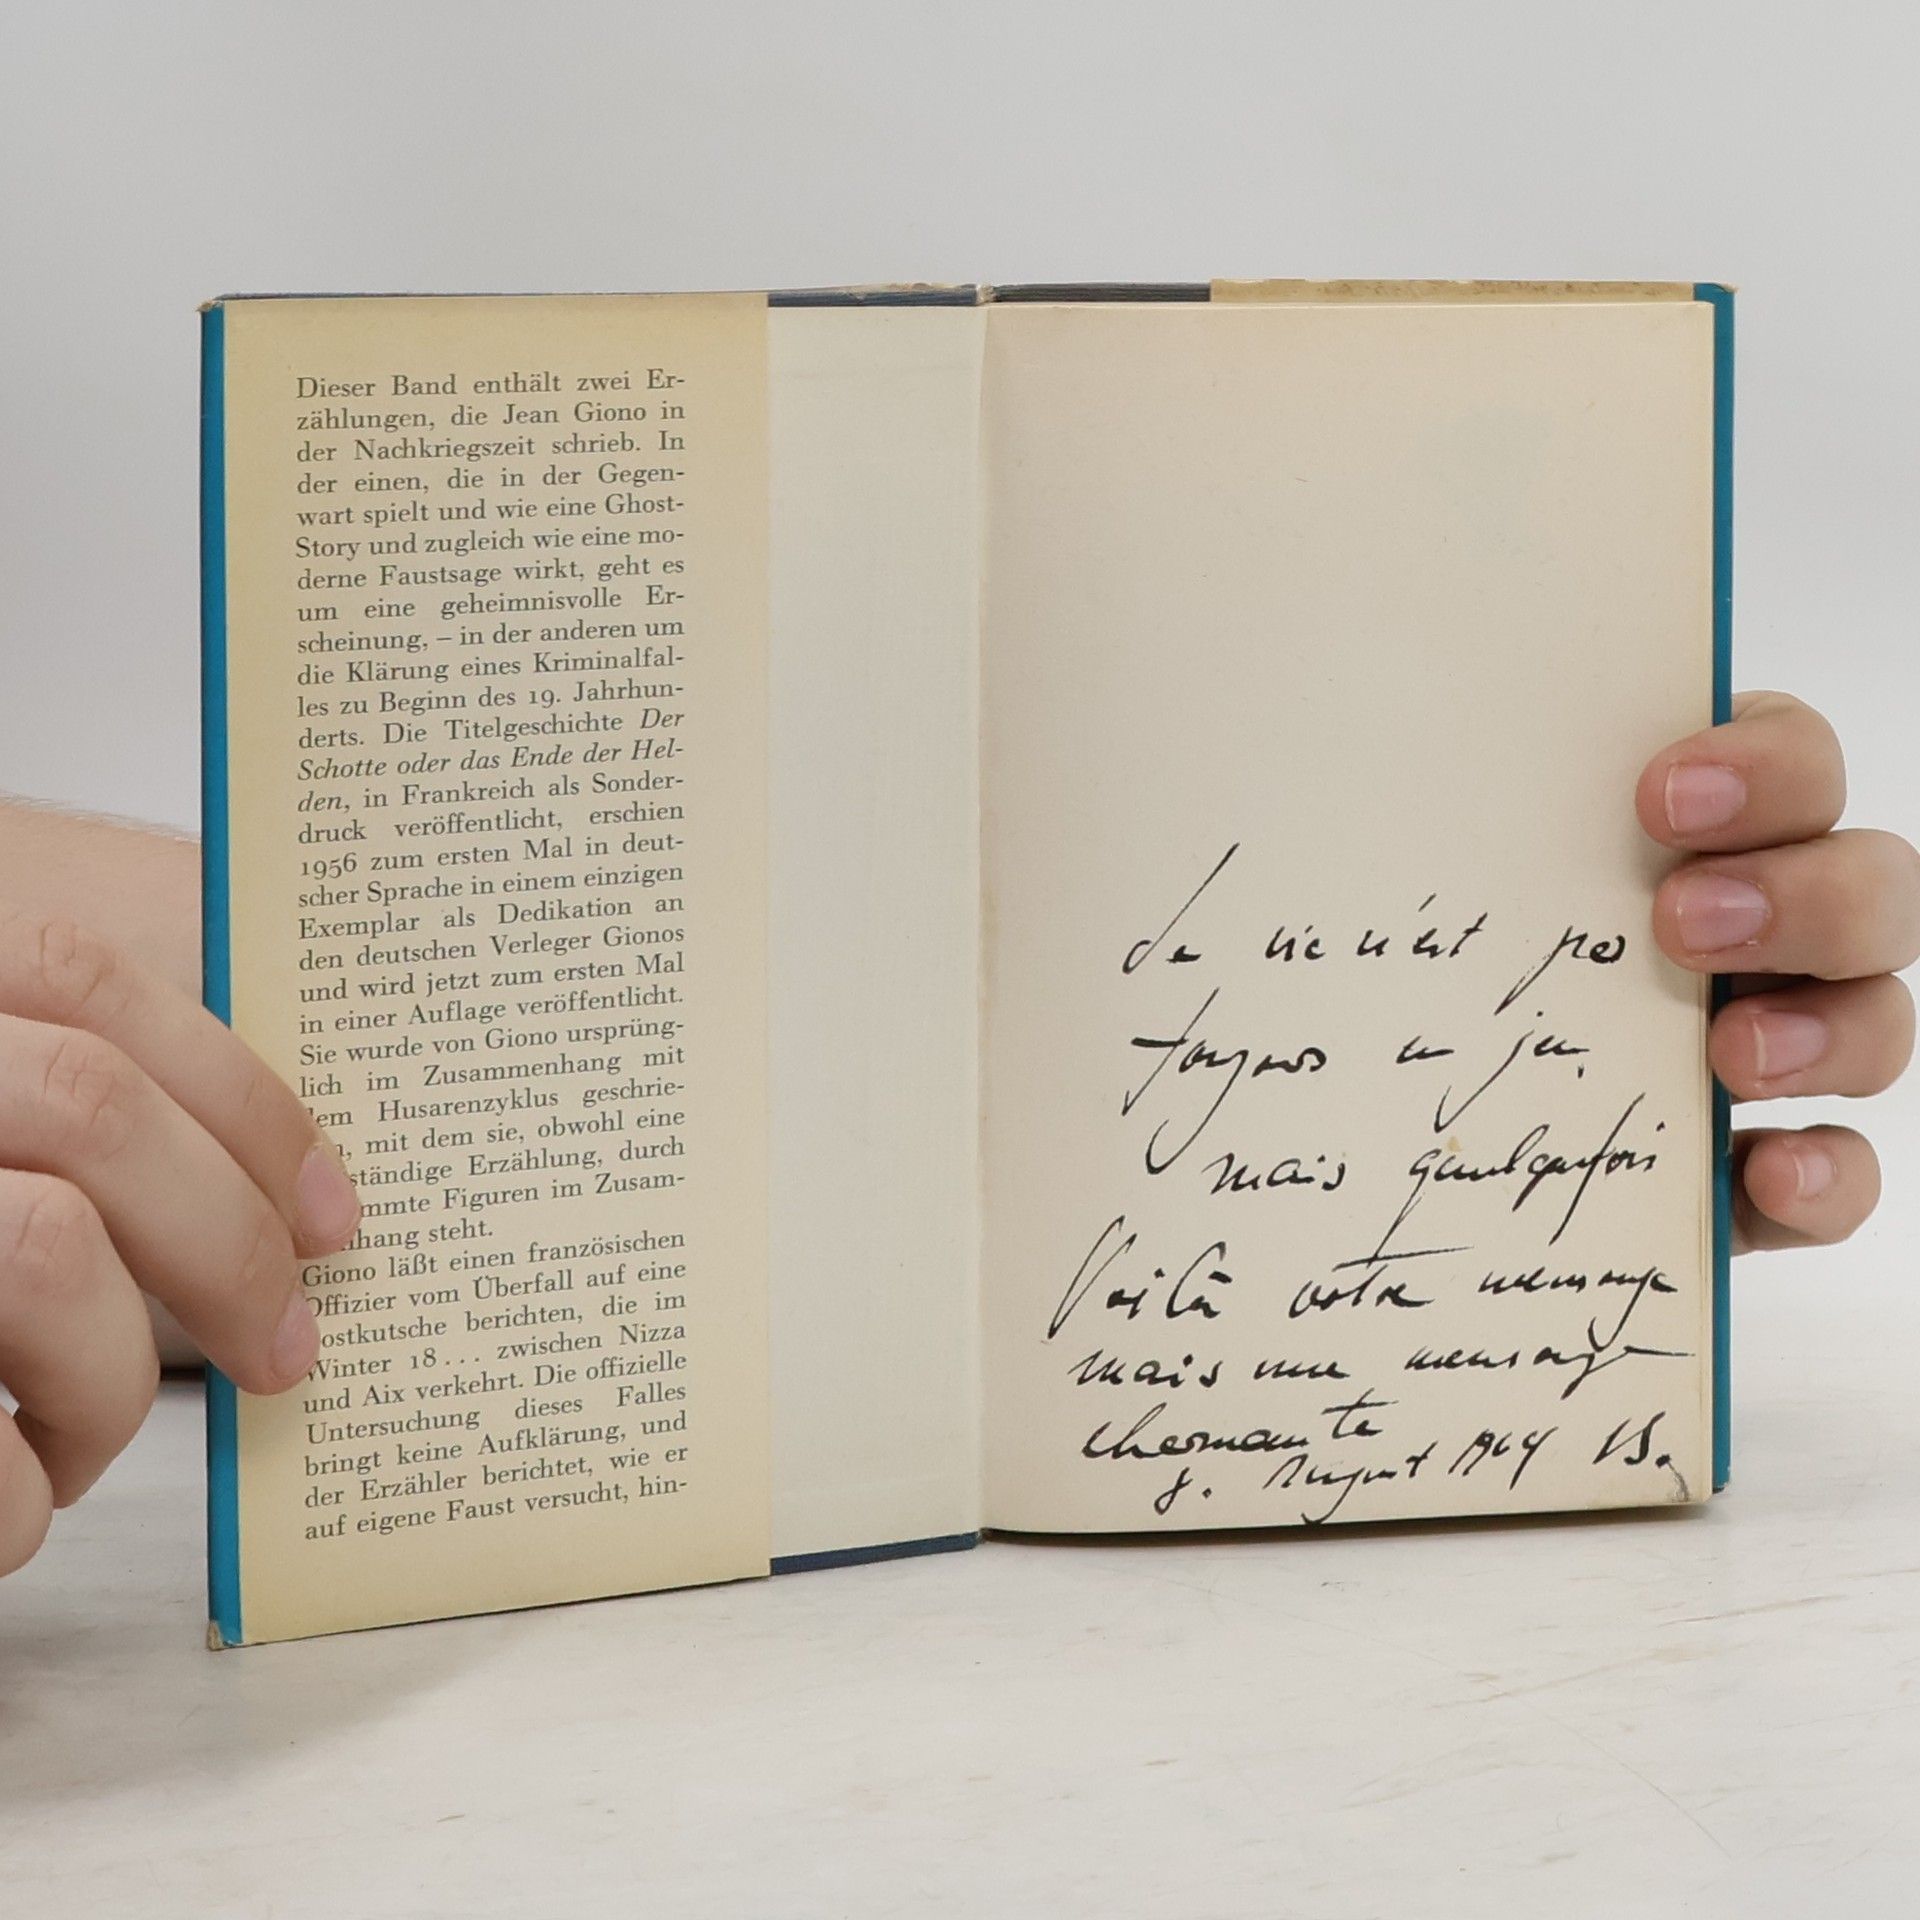 Dieser Band enthält zwei Er-
zählungen, die Jean Giono in
der Nachkriegszeit schrieb. In
der einen, die in der Gegen-
wart spielt und wie eine Ghost-
Story und zugleich wie eine mo-
derne Faustsage wirkt, geht es
um eine geheimnisvolle Er-
scheinung, – in der anderen um
die Klärung eines Kriminalfal-
les zu Beginn des 19. Jahrhun-
derts. Die Titelgeschichte Der
Schotte oder das Ende der Hel-
den, in Frankreich als Sonder-
druck veröffentlicht, erschien
1956 zum ersten Mal in deut-
scher Sprache in einem einzigen
Exemplar als Dedikation an
den deutschen Verleger Gionos
und wird jetzt zum ersten Mal
in einer Auflage veröffentlicht.
Sie wurde von Giono ursprüng-
lich im Zusammenhang mit
dem Husarenzyklus geschrie-
mit dem sie, obwohl eine
ständige Erzählung, durch
mmte Figuren im Zusam-
nhang steht.
Giono läßt einen französischen
Offizier vom Überfall auf eine
ostkutsche berichten, die im
Winter 18... zwischen Nizza
und Aix verkehrt. Die offizielle
Untersuchung dieses Falles
bringt keine Aufklärung, und
der Erzähler berichtet, wie er
auf eigene Faust versucht, hin-
La vie n'est pas
toujours un jeu,
mais quelquefois
Voilà votre mensonge
mais une mensonge
charmante
8. August 1964 B.